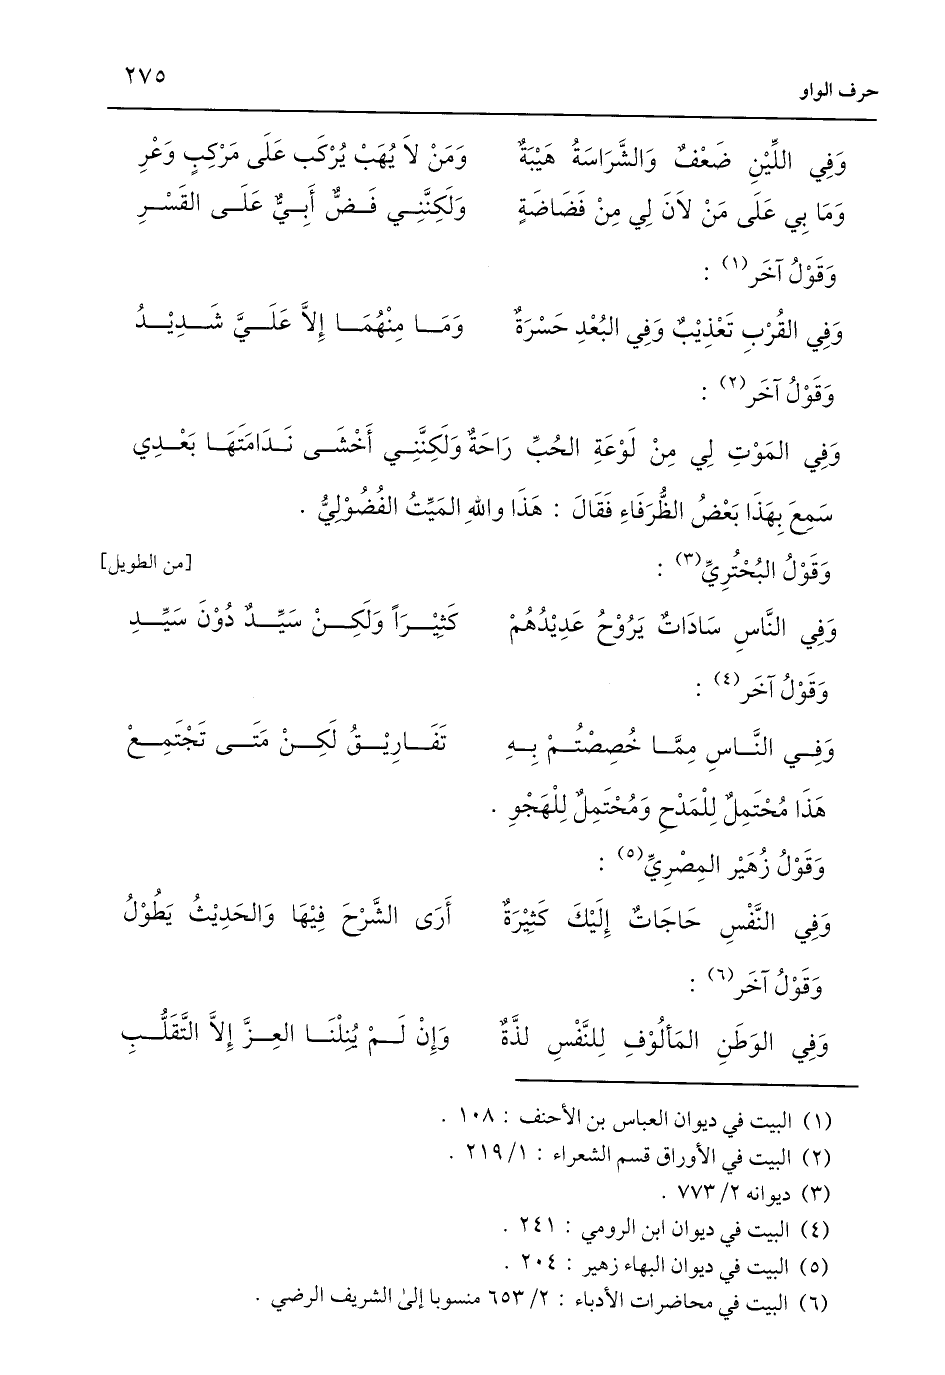 حرف الواو ٢٧٥
وَفِي اللِّيْنِ ضَعْفٌ وَالشَّرَاسَةُ هَيْبَةٌ وَمَنْ لاَ يُهَبْ يُرْكَب عَلَى مَرْكبٍ وَعْرِ
وَمَا بِي عَلَى مَنْ لاَنَ لِي مِنْ فَضَاضَةٍ وَلَكِنَّنِي فَضٌّ أَبِيٌّ عَلَى القَسْرِ
وَقَوْلُ آخَر(١) :
وَفِي القُرْبِ تَعْذِيْبٌ وَفِي البُعْدِ حَسْرَةٌ وَمَا مِنْهُمَا إِلاَّ عَلَيَّ شَدِيْدُ
وَقَوْلُ آخَر(٢) :
وَفِي المَوْتِ لِي مِنْ لَوْعَةِ الحُبِّ رَاحَةٌ وَلَكِنَّنِي أَخْشَى نَدَامَتَهَا بَعْدِي
سَمِعَ بِهَذَا بَعْضُ الظُّرَفَاءِ فَقَالَ : هَذَا واللهِ المَيِّتُ الفُضُوْلِيُّ .
وَقَوْلُ البُحْتُرِيِّ(٣) : [من الطويل]
وَفِي النَّاسِ سَادَاتٌ يَرُوْحُ عَدِيْدُهُمْ كَثِيْرَاً وَلَكِنْ سَيِّدٌ دُوْنَ سَيِّدِ
وَقَوْلُ آخَر(٤) :
وَفِي النَّاسِ مِمَّا خُصِصْتُمْ بِهِ تَفَارِيْقُ لَكِنْ مَتَى تَجْتَمِعْ
هَذَا مُحْتَمِلٌ لِلْمَدْحِ وَمُحْتَمِلٌ لِلْهَجْوِ .
وَقَوْلُ زُهَيْر المِصْرِيِّ(٥) :
وَفِي النَّفْسِ حَاجَاتٌ إِلَيْكَ كَثِيْرَةٌ أَرَى الشَّرْحَ فِيْهَا وَالحَدِيْثُ يَطُوْلُ
وَقَوْلُ آخَر(٦) :
وَفِي الوَطَنِ المَألُوْفِ لِلنَّفْسِ لذَّةٌ وَإِنْ لَمْ يُنِلْنَا العِزَّ إِلاَّ التَّقَلُّبِ
(١) البيت في ديوان العباس بن الأحنف : ١٠٨ .
(٢) البيت في الأوراق قسم الشعراء : ١/ ٢١٩ .
(٣) ديوانه ٢/ ٧٧٣ .
(٤) البيت في ديوان ابن الرومي : ٢٤١ .
(٥) البيت في ديوان البهاء زهير : ٢٠٤ .
(٦) البيت في محاضرات الأدباء : ٢/ ٦٥٣ منسوبا إلىٰ الشريف الرضي .